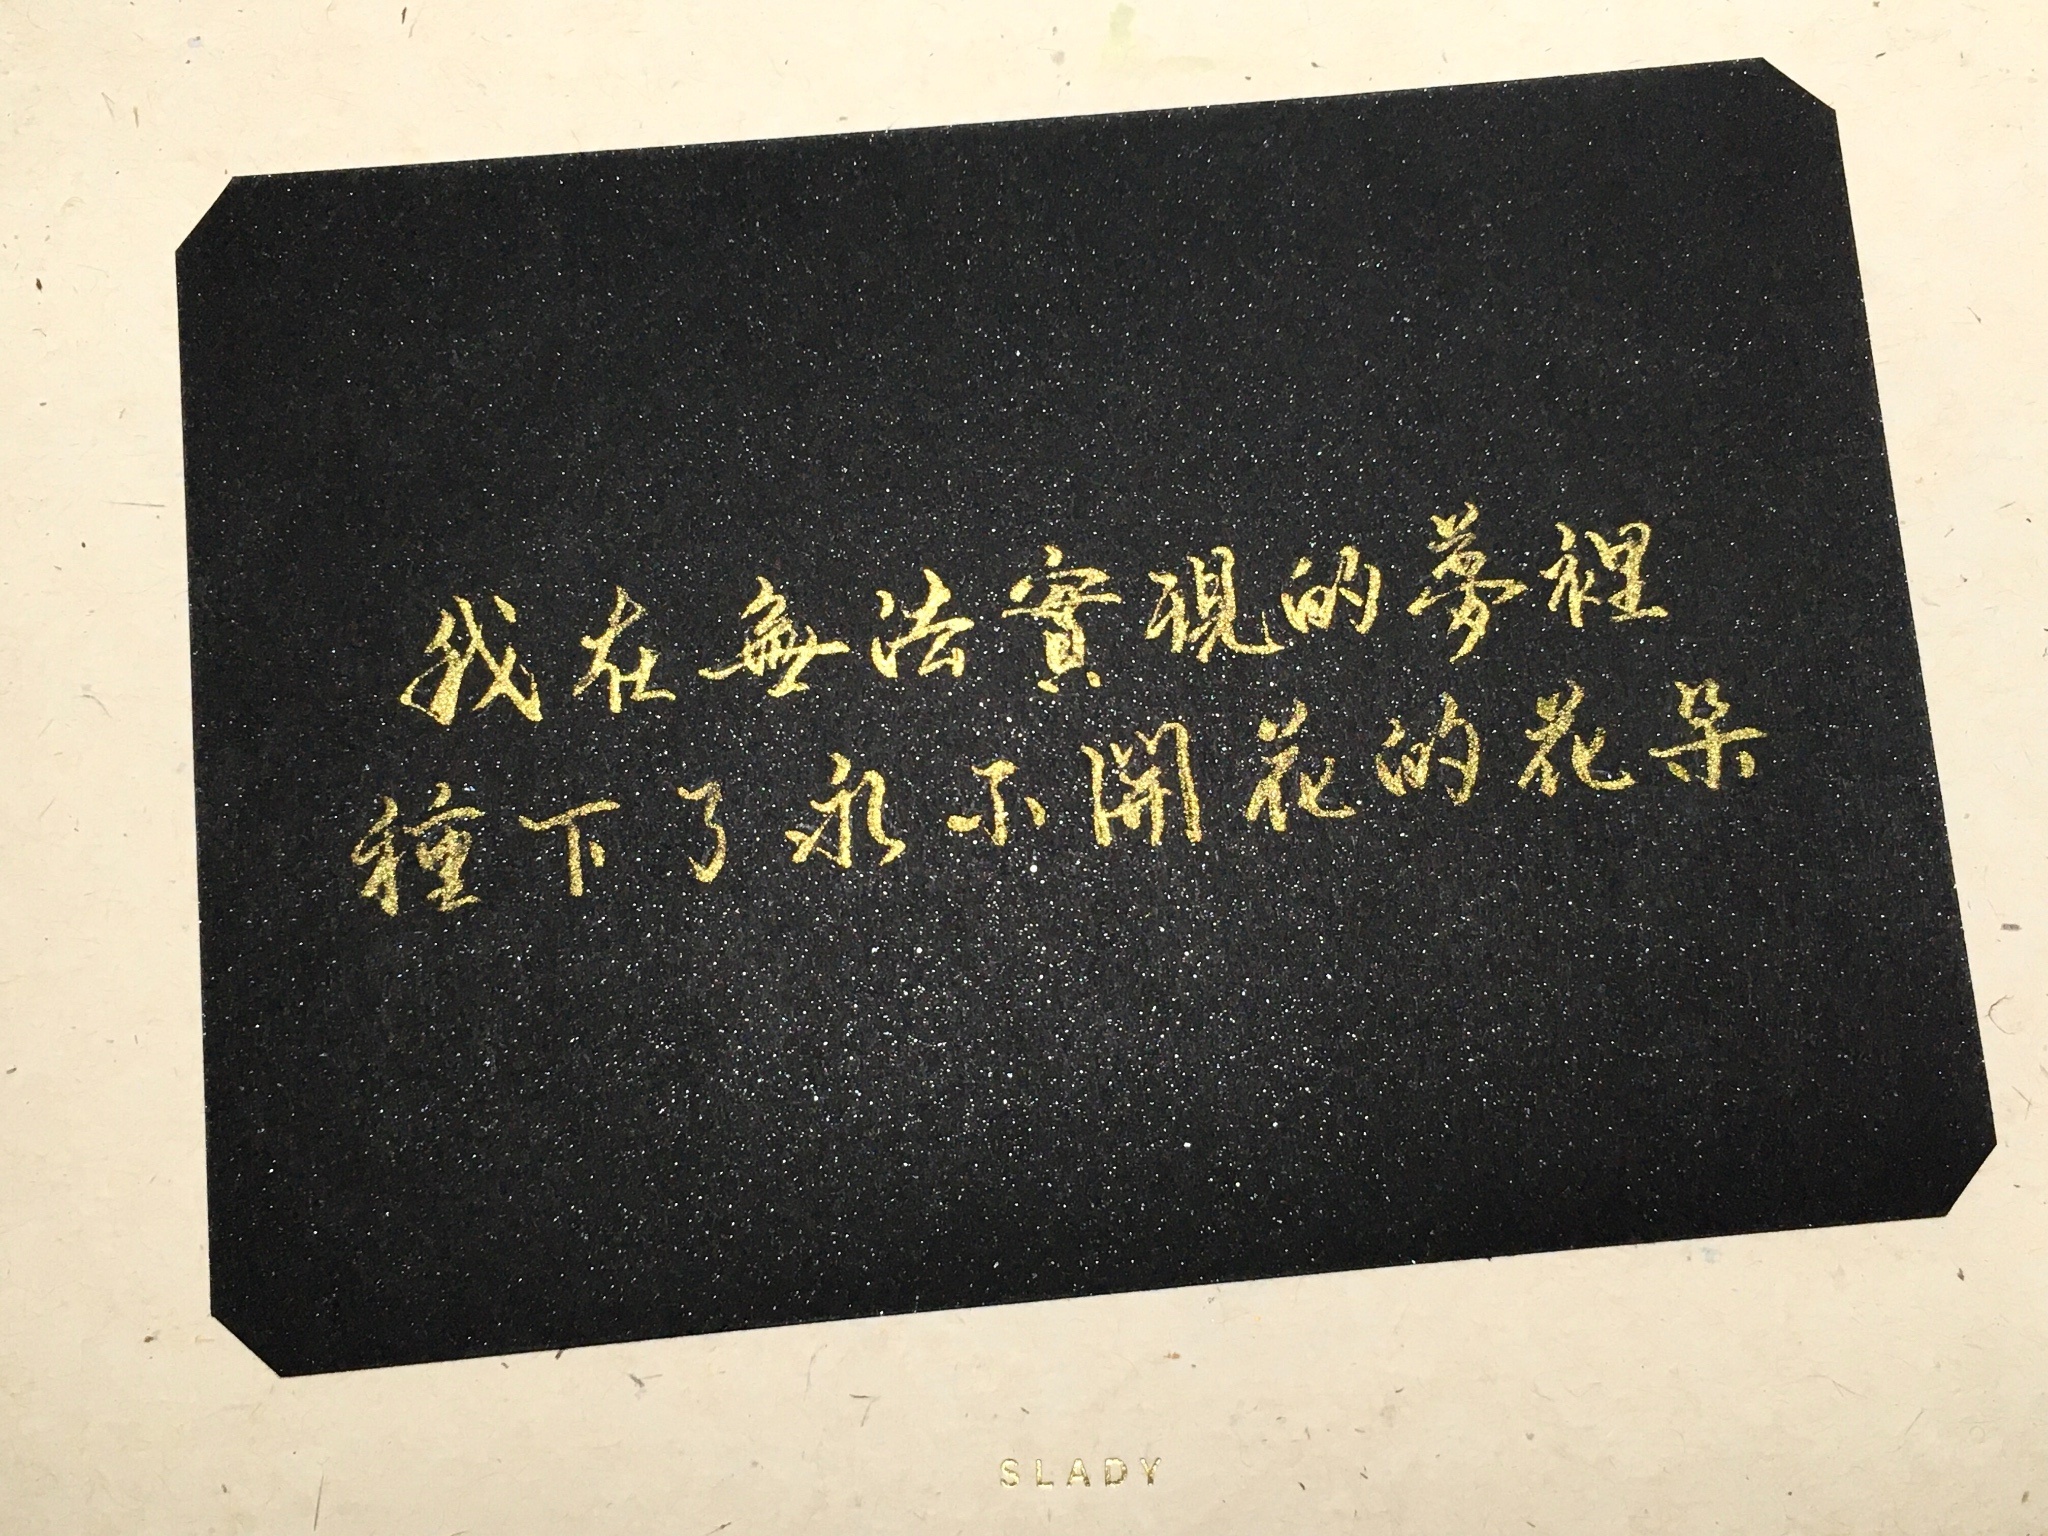 我在無法實現的夢裡
種下了永不開花的花朵
SLADY